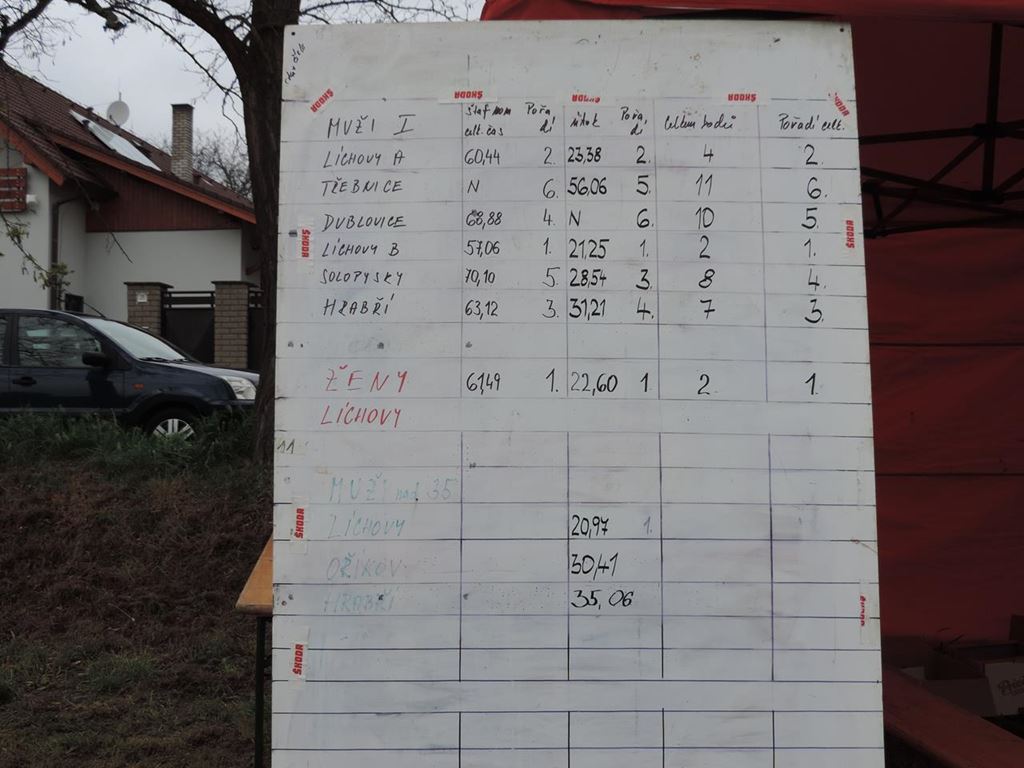 ŠKODA ŠKODA ŠKODA ŠKODA ŠKODA
MUŽI I štaf nom celk. čas Pořadí útok Pořadí Celkem bodů Pořadí celk.
LÍCHOVY A 60,44 2. 23,38 2. 4 2.
TŘEBNICE N 6. 56,06 5. 11 6.
DUBLOVICE 68,88 4. N 6. 10 5.
ŠKODA ŠKODA
LÍCHOVY B 57,06 1. 21,25 1. 2 1.
SOLOPYSKY 70,10 5. 28,54 3. 8 4.
HRABŘÍ 63,12 3. 31,21 4. 7 3.
ŽENY 61,49 1. 22,60 1. 2. 1.
LÍCHOVY
11
MUŽI nad 35
ŠKODA
LÍCHOVY 20,97 1.
OŘÍKOV 30,41
HRABŘÍ 35,06
ŠKODA
ŠKODA